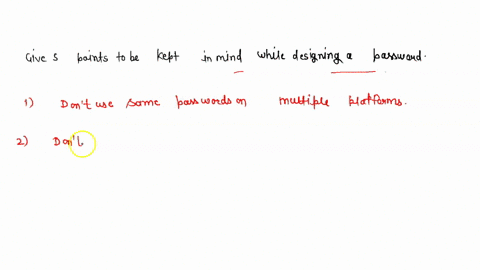 Give 5 points to be kept in mind while designing a password.
1) Don't use same passwords on multiple platforms.
2) Don't